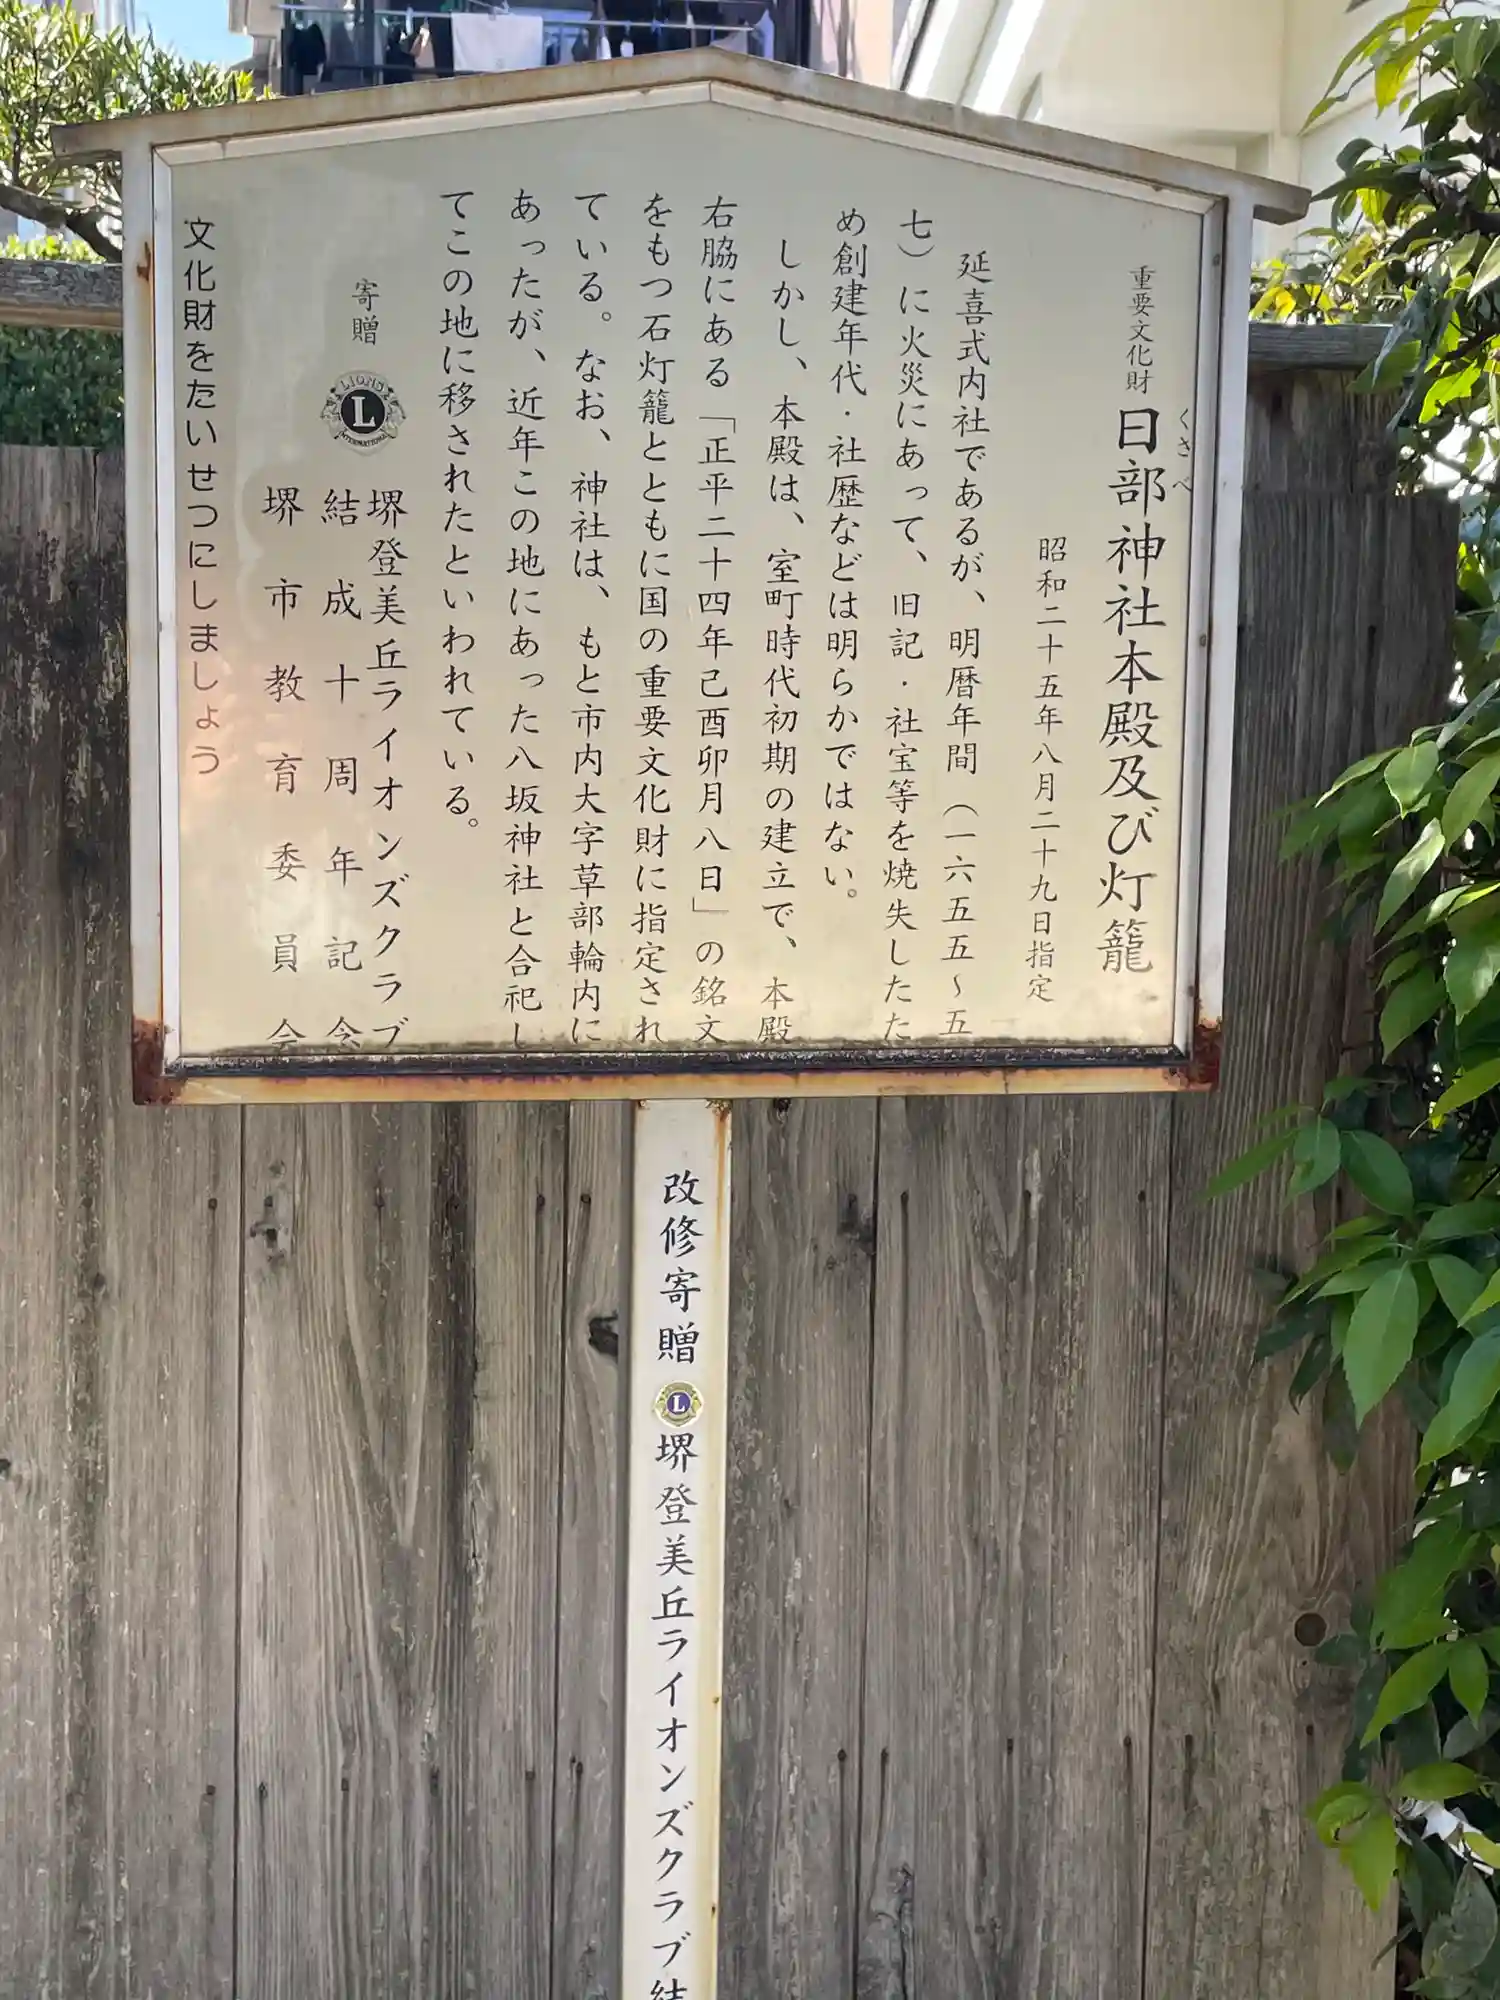 重要文化財 日部神社本殿及び灯籠
くさべ
昭和二十五年八月二十九日指定
延喜式内社であるが、明暦年間(一六五五〜五
七)に火災にあって、旧記・社宝等を焼失したた
め創建年代・社歴などは明らかではない。
しかし、本殿は、室町時代初期の建立で、本殿
右脇にある「正平二十四年己酉卯月八日」の銘文
をもつ石灯籠とともに国の重要文化財に指定され
ている。なお、神社は、もと市内大字草部輪内に
あったが、近年この地にあった八坂神社と合祀し
てこの地に移されたといわれている。
寄贈
LIONS
L
INTERNATIONAL
堺登美丘ライオンズクラブ
結成十周年記念
堺市教育委員会
文化財をたいせつにしましょう
改修寄贈 L 堺登美丘ライオンズクラブ結